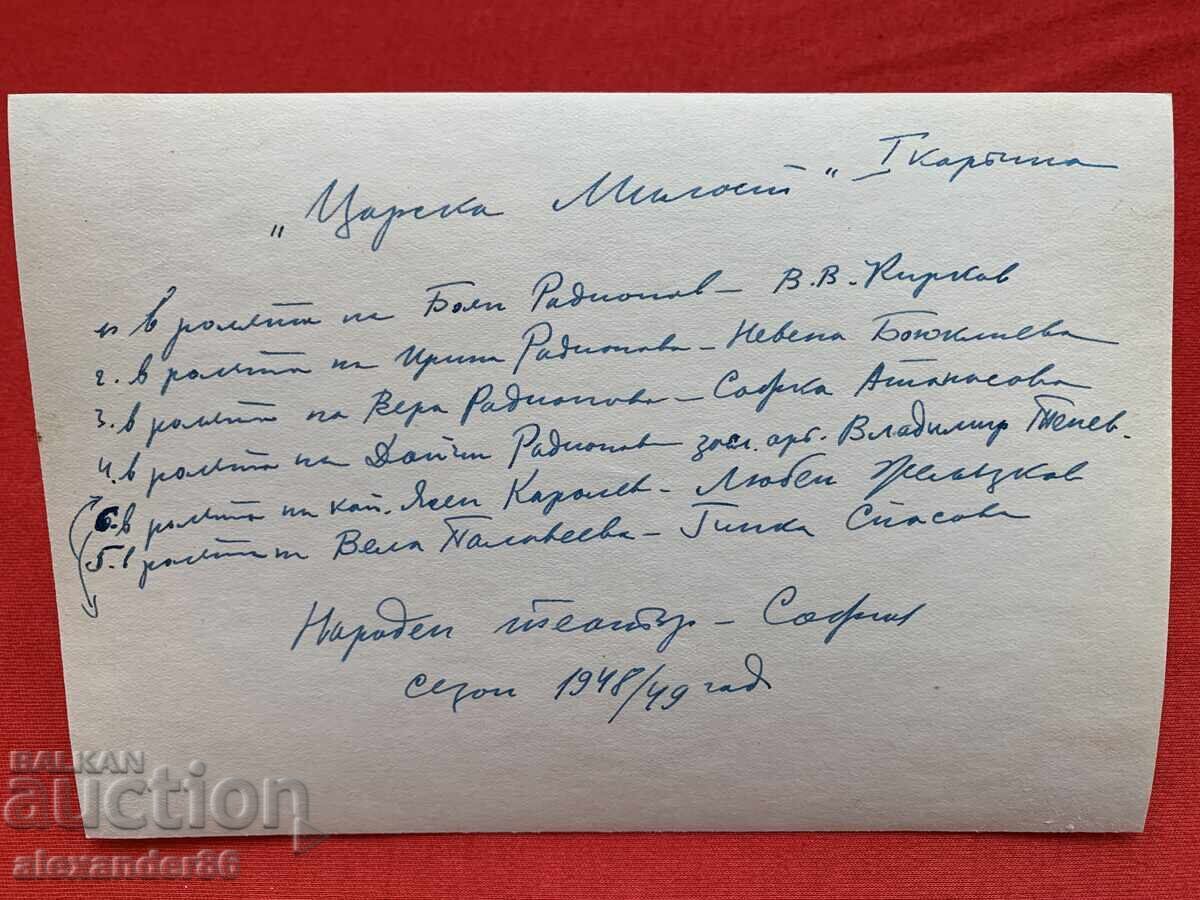 „Царска Милост“ I картина
1. в ролята на Боян Радионов – В. В. Кирков
2. в ролята на Ирина Радионова – Невена Бююклиева
3. в ролята на Вера Радионова – Софка Атанасова
4. в ролята на Дойчин Радионов засл. арт. Владимир Тенев.
6. в ролята на кап. Ясен Каролев – Любен Желязков
5. в ролята на Вела Палавеева – Гинка Спасова
Народен театър – София
сезон 1948/49 год
BALKAN
auction
alexander86